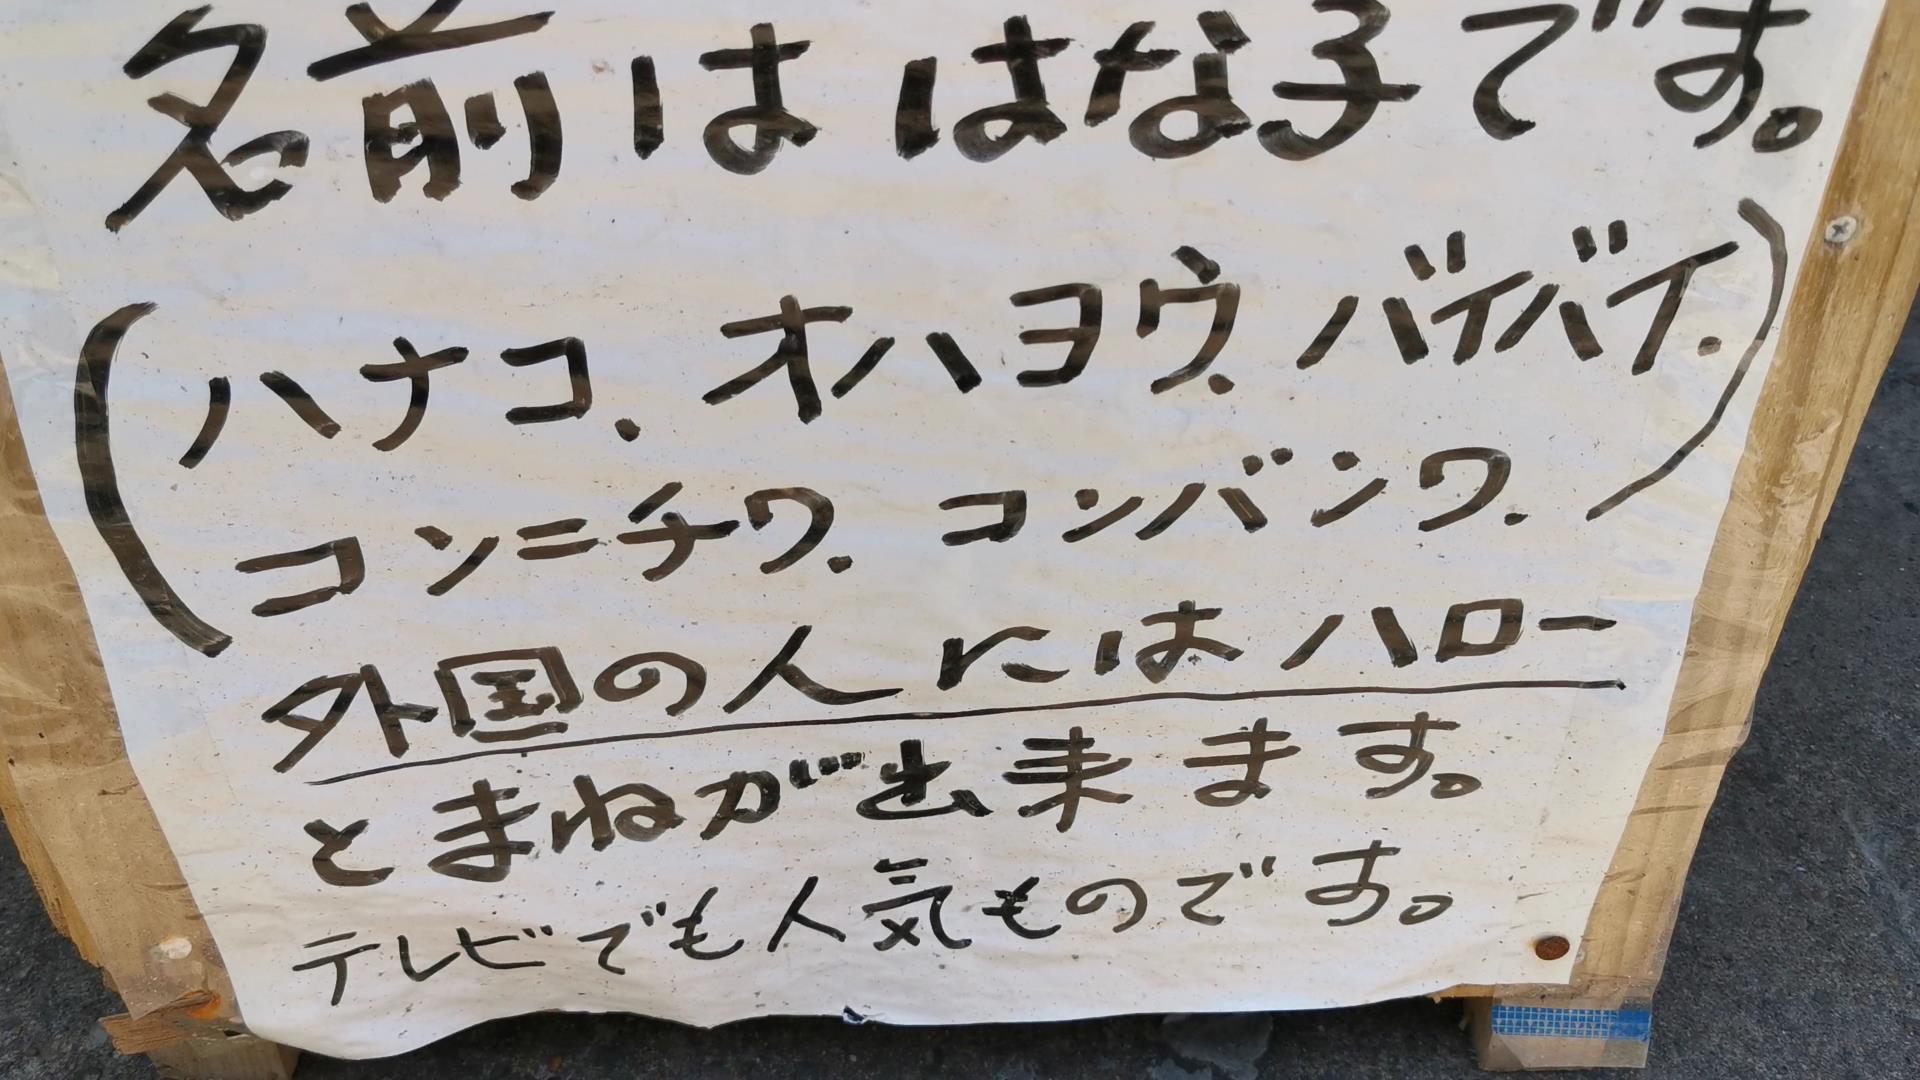 名前は はな子です。
(ハナコ. オハヨウ. バイバイ.
コンニチワ. コンバンワ.)
外国の人にはハロー
とまねが出来ます。
テレビでも人気ものです。